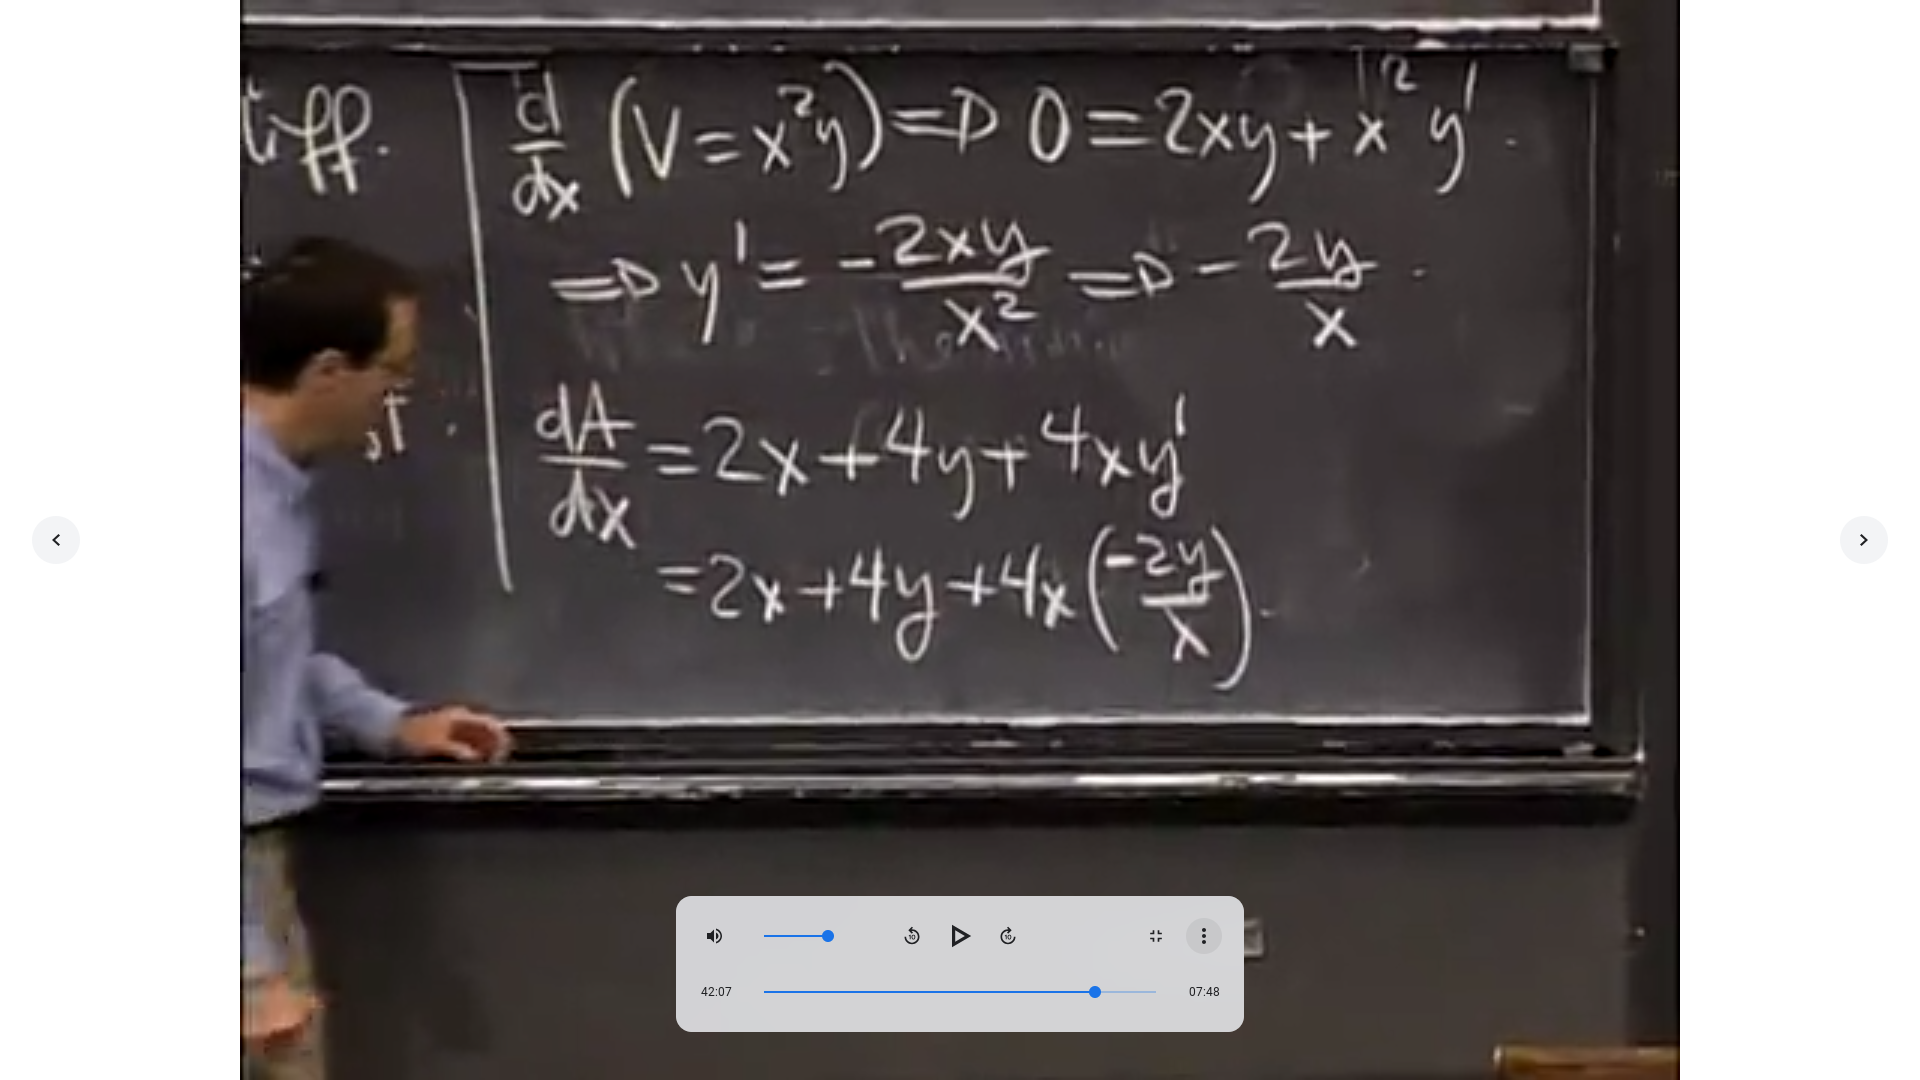 iff.
d/dx (V = x²y) ⇒ 0 = 2xy + x²y'.
⇒ y' = -2xy/x² ⇒ -2y/x.
st.
dA/dx = 2x + 4y + 4xy'
= 2x + 4y + 4x(-2y/x).
10
10
42:07
07:48